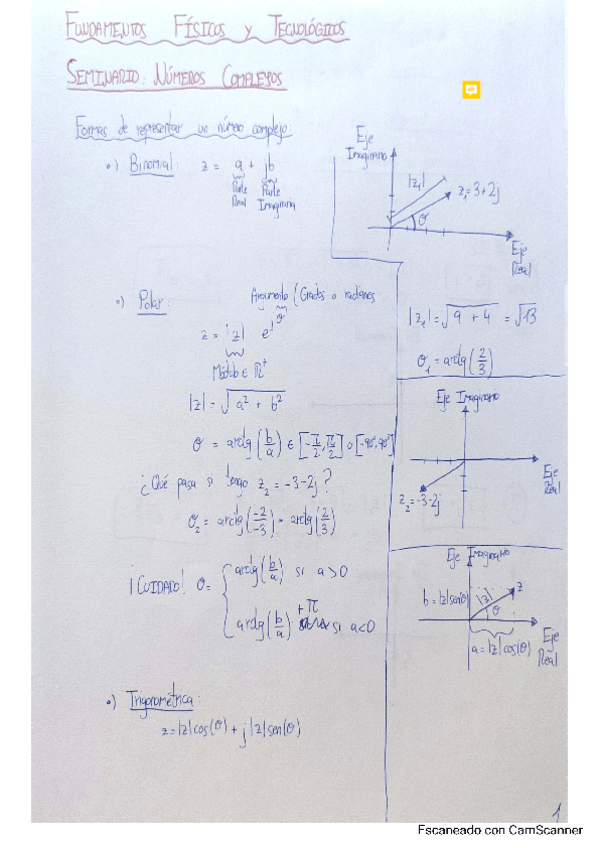 FUNDAMENTOS FÍSICOS Y TECNOLÓGICOS
SEMINARIO: NÚMEROS COMPLEJOS
Formas de representar un número complejo:
•) Binomial: z = a + jb
Parte Real
Parte Imaginaria
Eje Imaginario
|z₁|
z₁=3+2j
θ
Eje Real
•) Polar:
Argumento (Grados o radianes
z = |z| e^jθ
Módulo ∈ ℝ⁺
|z| = √(a² + b²)
θ = arctg(b/a) ∈ [-π/2, π/2] o [-90°, 90°]
¿Qué pasa si tengo z₂ = -3-2j?
θ₂ = arctg(-2/-3) = arctg(2/3)
¡CUIDADO! θ = { arctg(b/a) si a>0
arctg(b/a) +π si a<0
|z₁| = √(9 + 4) = √13
θ₁ = arctg(2/3)
Eje Imaginario
Eje Real
z₂=-3-2j
Eje Imaginario
b=|z|sen(θ)
|z|
z
θ
Eje Real
a=|z|cos(θ)
•) Trigonométrica:
z=|z|cos(θ) + j|z|sen(θ)
1
Escaneado con CamScanner